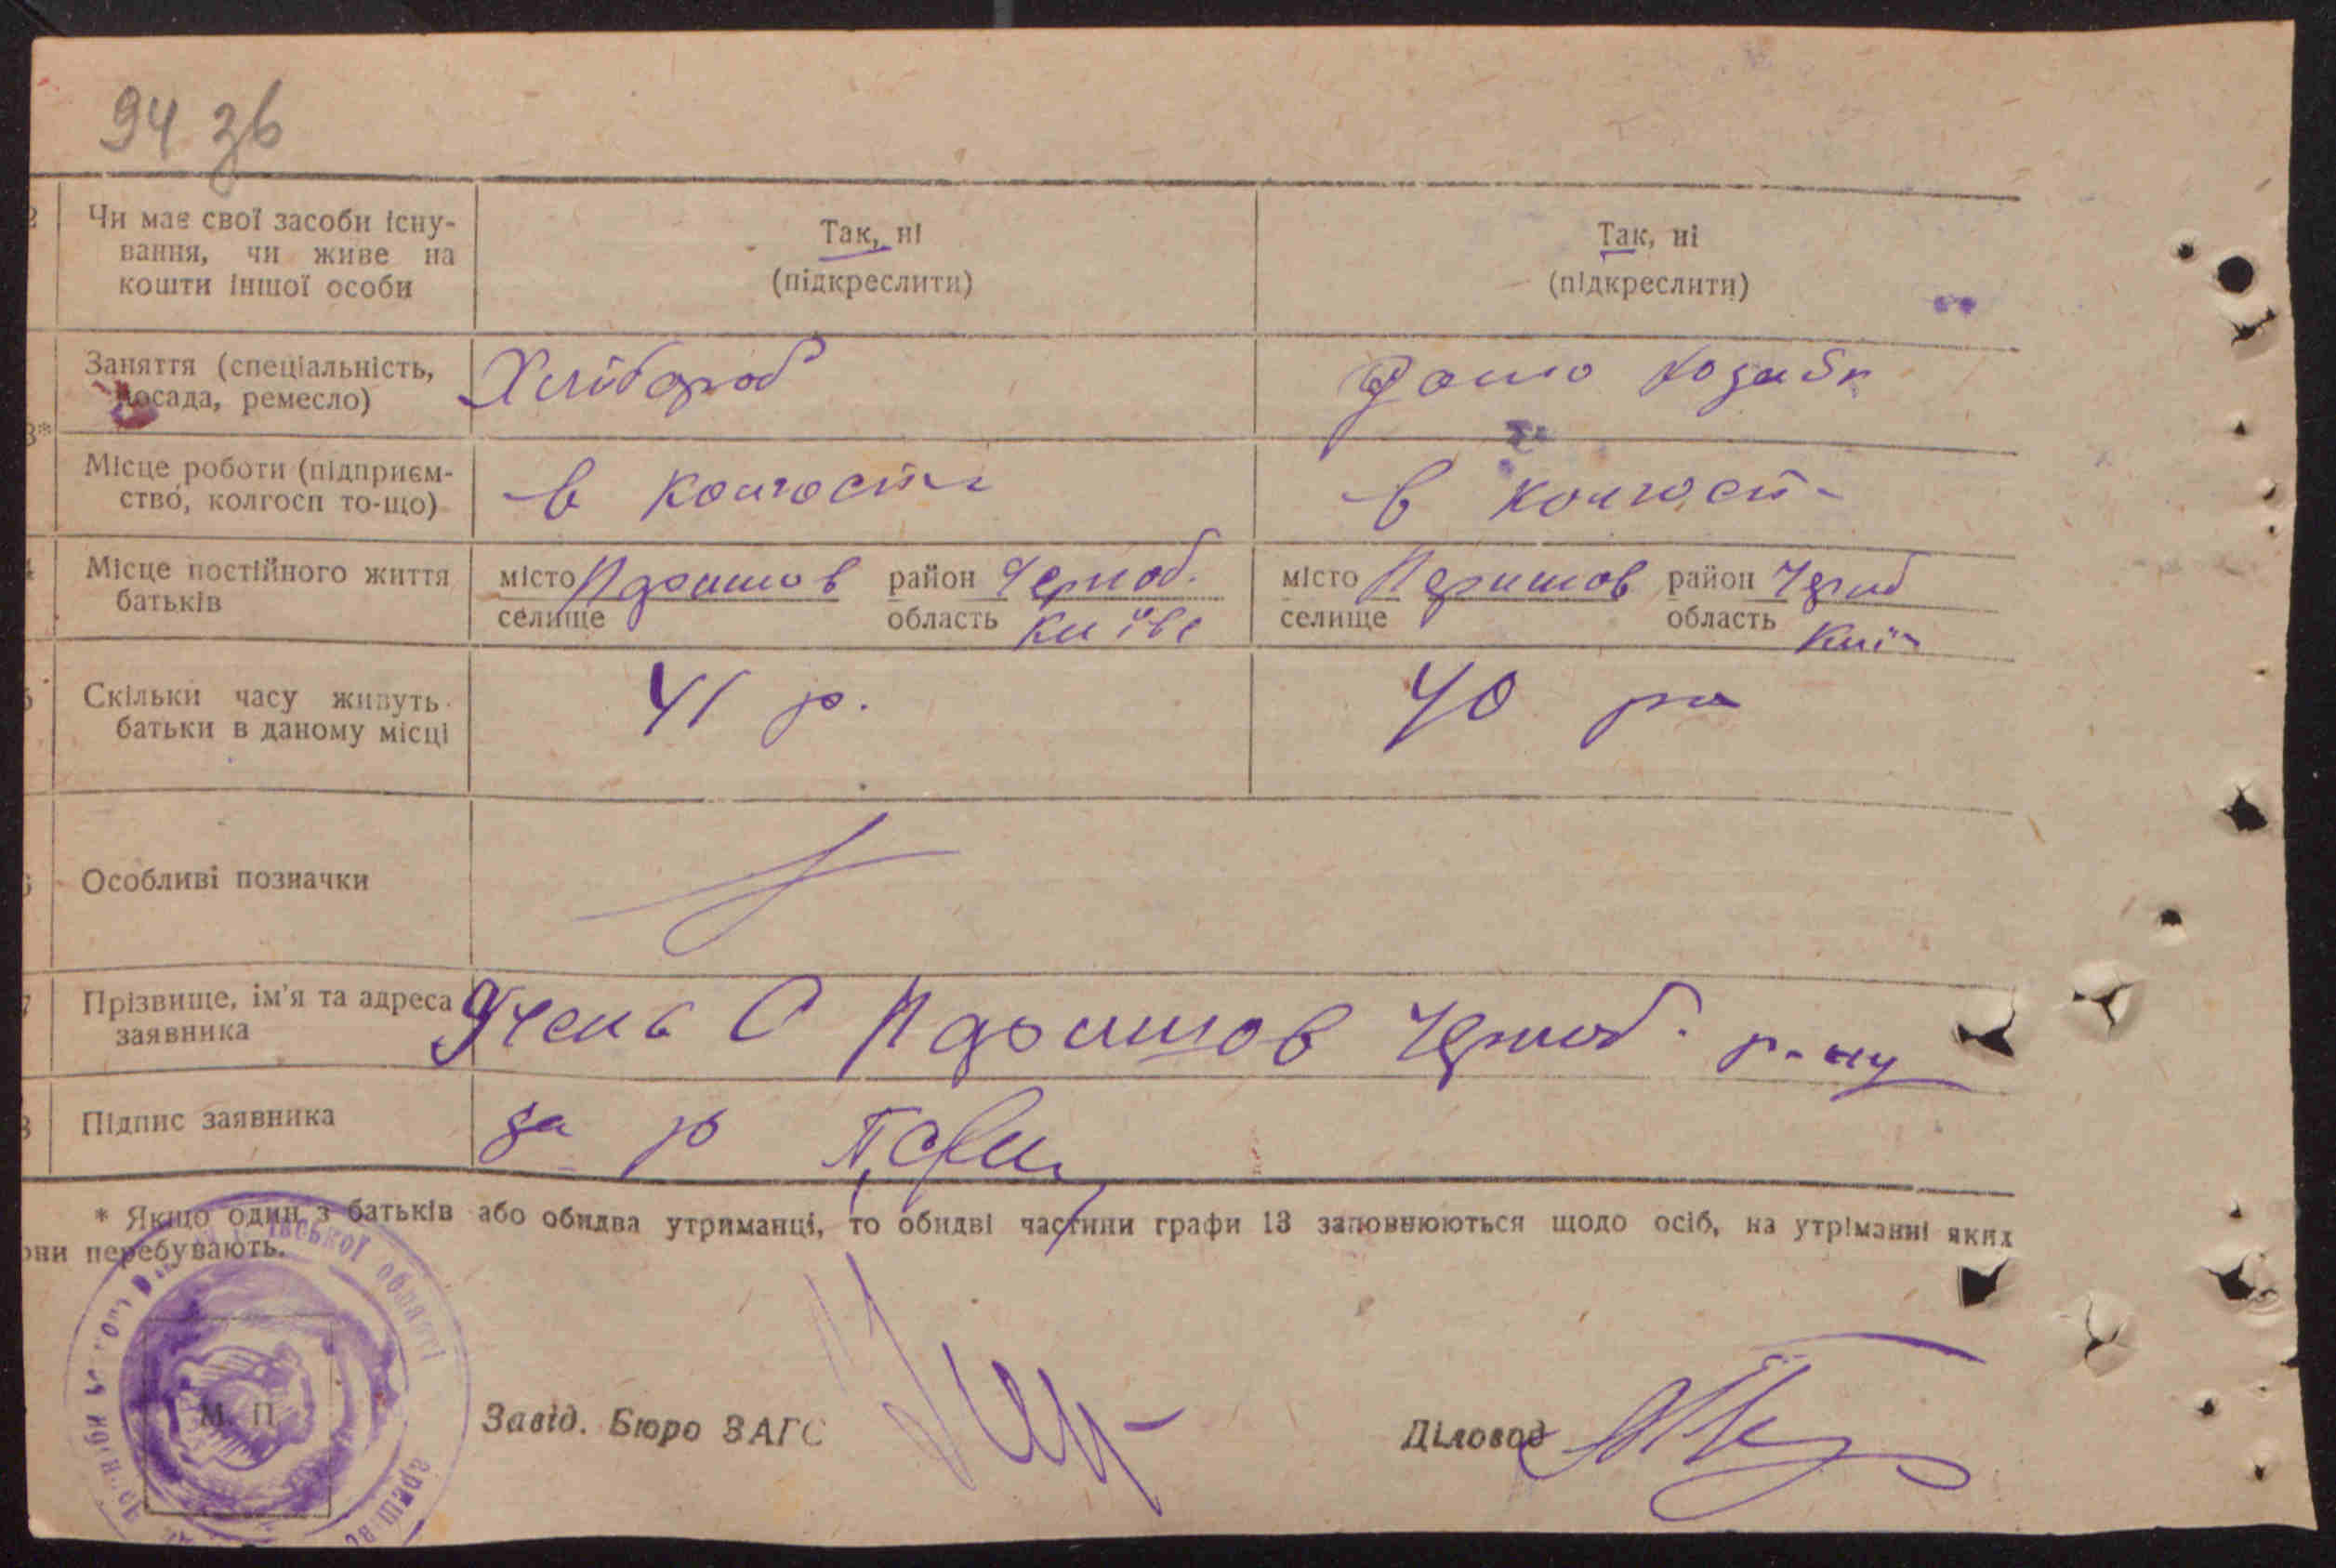 94 зв
Чи має свої засоби існу-
вання, чи живе на
кошти іншої особи
Так, ні
(підкреслити)
Так, ні
(підкреслити)
Заняття (спеціальність,
посада, ремесло)
Хлібороб
Місце роботи (підприєм-
ство, колгосп то-що)
в колгоспі
в колгосп
4 Місце постійного життя
батьків
місто Паришов район Чорноб.
селище область Київс
місто Паришов район Чорноб
селище область Київ
Скільки часу живуть
батьки в даному місці
41 р.
40 р
Особливі позначки
7 Прізвище, ім'я та адреса
заявника
С Паришов Чорноб. р-ну
8 Підпис заявника
за
* Якщо один з батьків або обидва утриманці, то обидві частини графи 13 заповнюються щодо осіб, на утріманні яких
они перебувають.
області
М. П
Завід. Бюро ЗАГС
Діловод